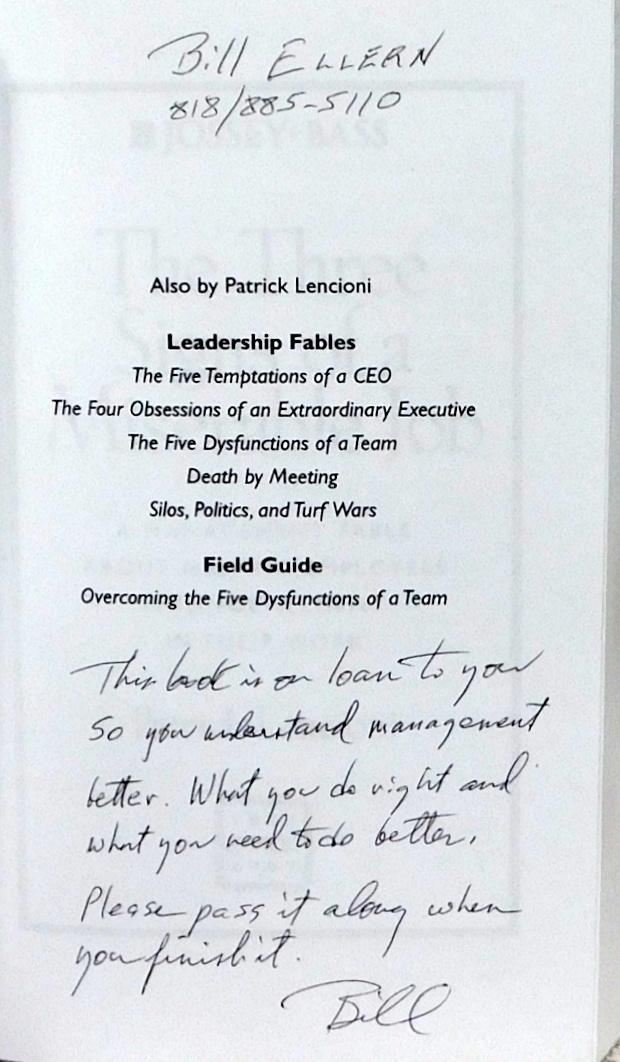 Bill ELLERN
818/885-5110
JOSSEY-BASS
The Three
Signs of a
Miserable Job
Also by Patrick Lencioni
Leadership Fables
The Five Temptations of a CEO
The Four Obsessions of an Extraordinary Executive
The Five Dysfunctions of a Team
Death by Meeting
Silos, Politics, and Turf Wars
Field Guide
Overcoming the Five Dysfunctions of a Team
This book is on loan to you
So you understand management
better. What you do right and
what you need to do better.
Please pass it along when
you finish it.
Bill